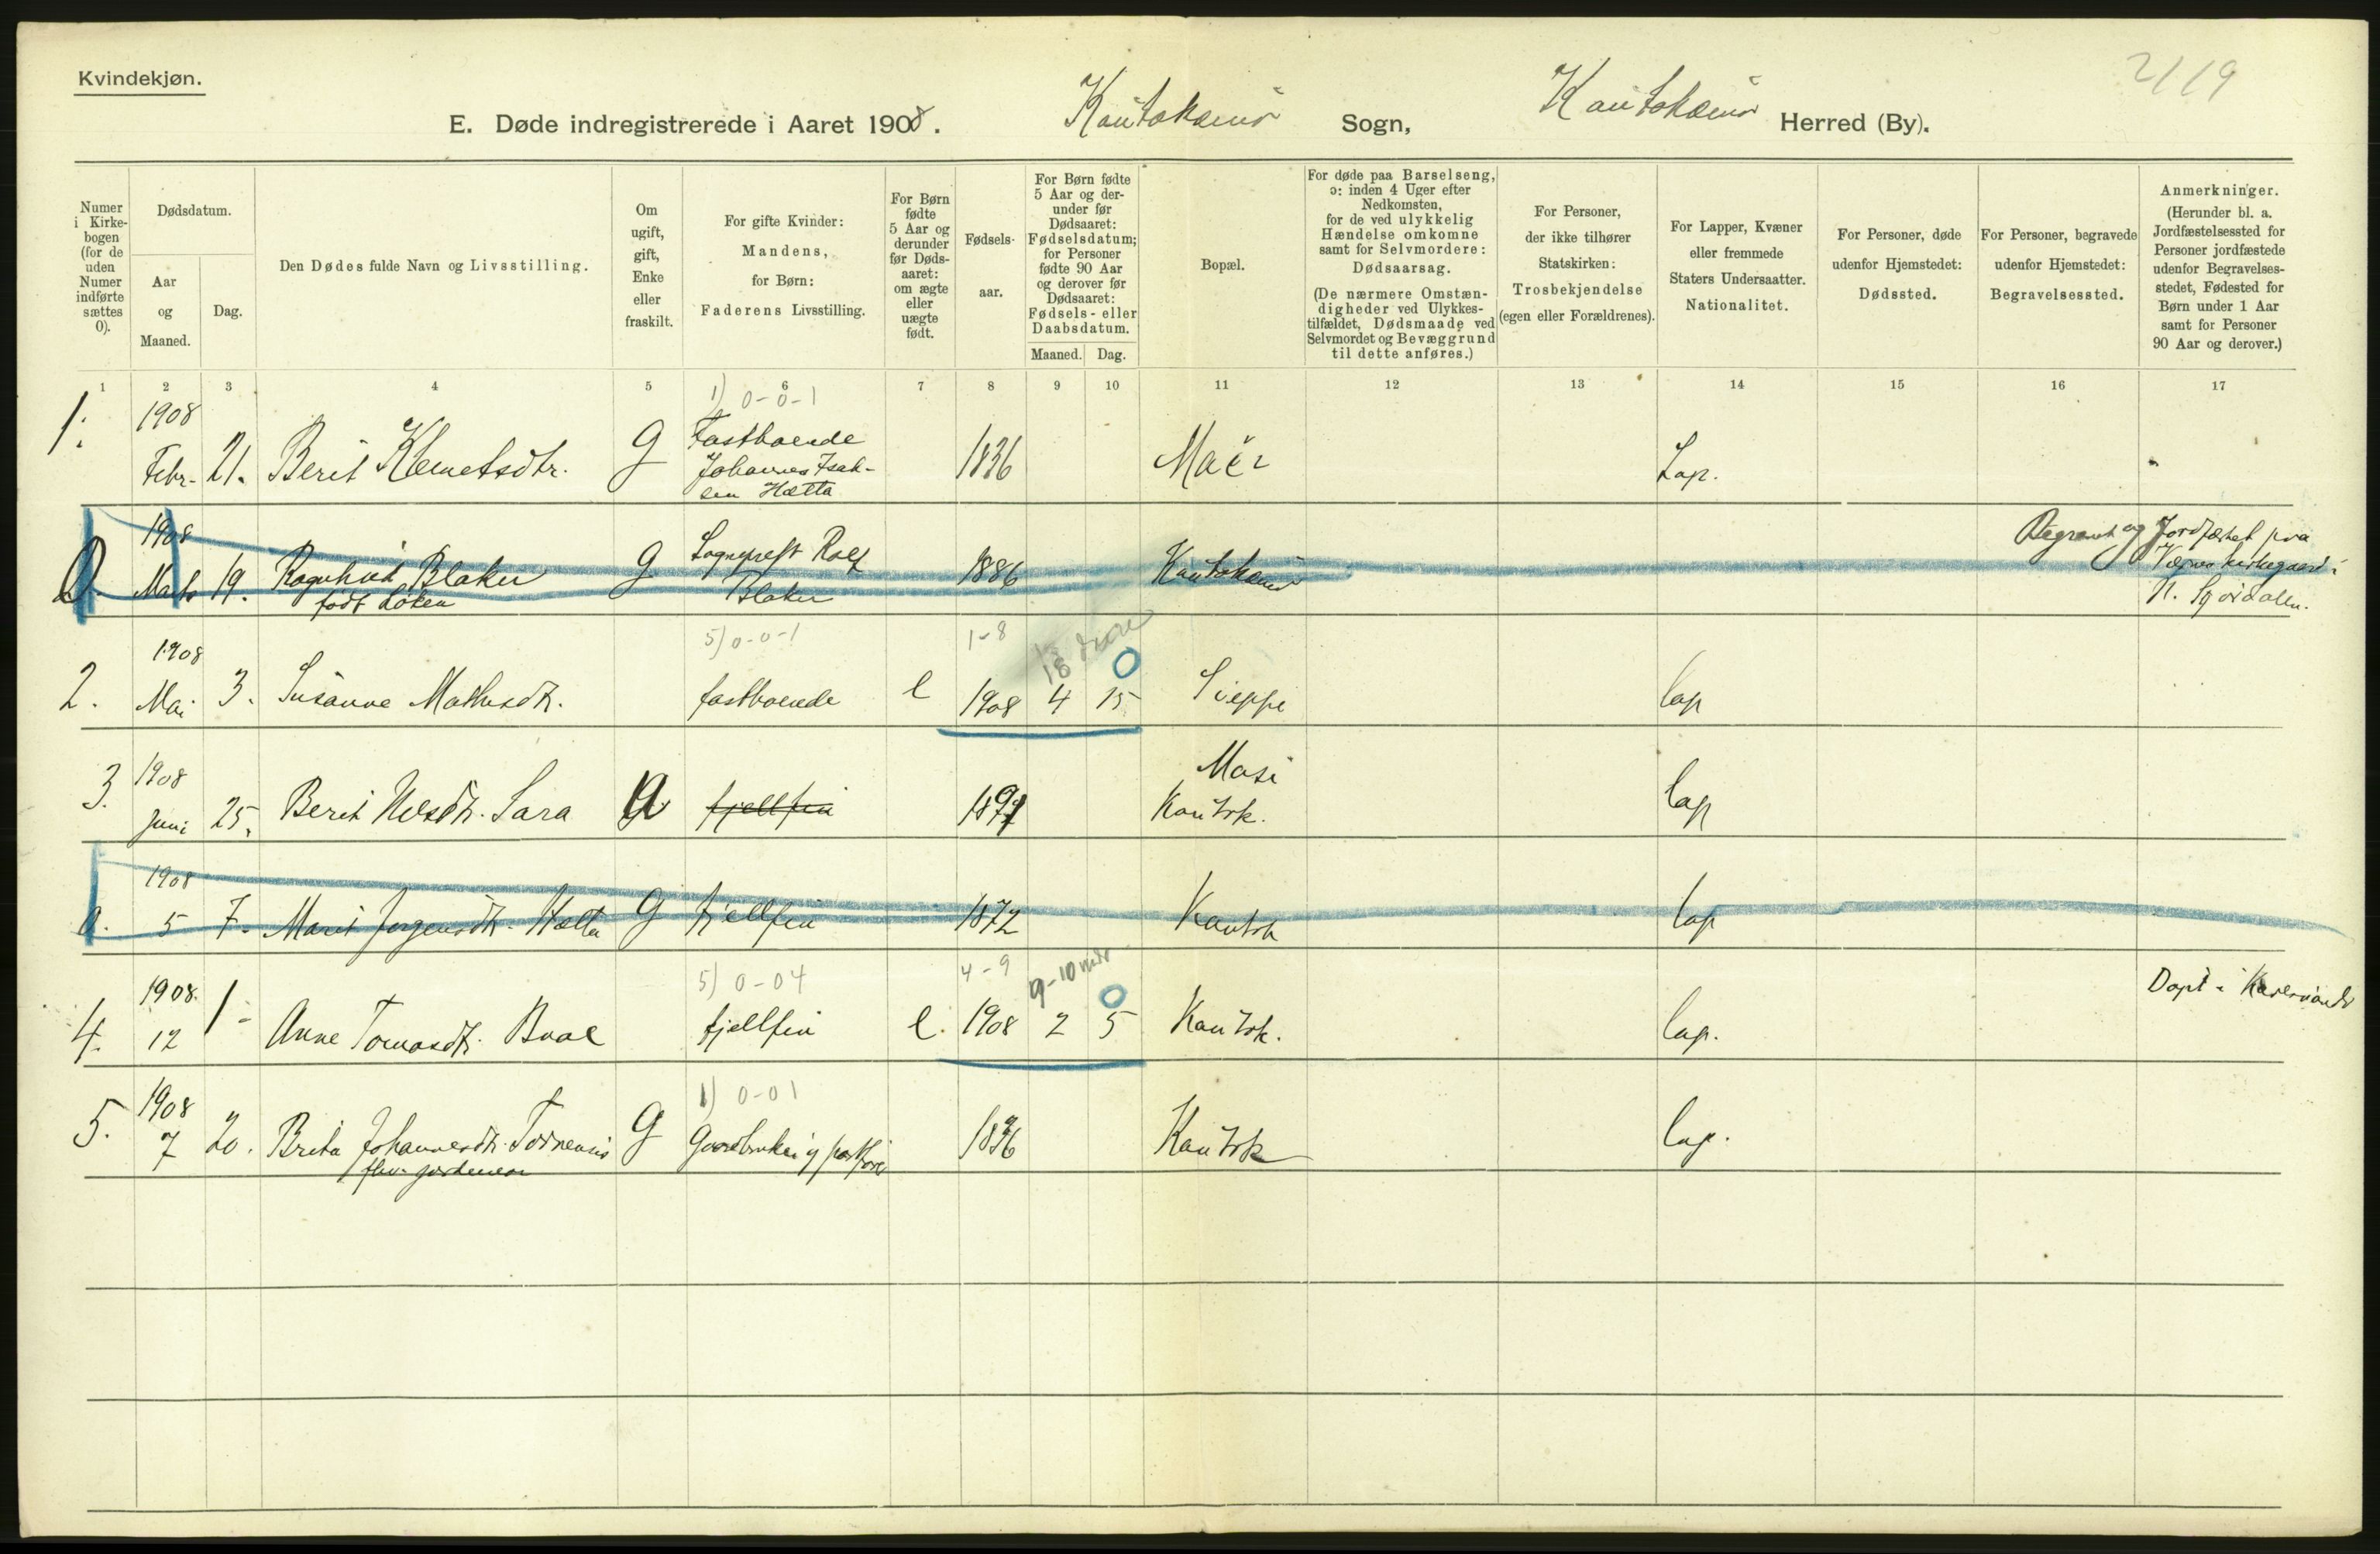 Kvindekjøn.
2119
E. Døde indregistrerede i Aaret 1908. Kautokeino Sogn, Kautokeino Herred (By).
Numer i Kirkebogen (for de uden Numer indførte sættes 0).
Dødsdatum.
Aar og Maaned.
Dag.
Den Dødes fulde Navn og Livsstilling.
Om ugift, gift, Enke eller fraskilt.
For gifte Kvinder: Mandens, for Børn: Faderens Livsstilling.
For Børn fødte 5 Aar og derunder før Dødsaaret: om ægte eller uægte født.
Fødselsaar.
For Børn fødte 5 Aar og derunder før Dødsaaret: Fødselsdatum; for Personer fødte 90 Aar og derover før Dødsaaret: Fødsels- eller Daabsdatum.
Maaned. Dag.
Bopæl.
For døde paa Barselseng, ɔ: inden 4 Uger efter Nedkomsten, for de ved ulykkelig Hændelse omkomne samt for Selvmordere: Dødsaarsag.
(De nærmere Omstændigheder ved Ulykkestilfældet, Dødsmaade ved Selvmordet og Bevæggrund til dette anføres.)
For Personer, der ikke tilhører Statskirken: Trosbekjendelse (egen eller Forældrenes).
For Lapper, Kvæner eller fremmede Staters Undersaatter. Nationalitet.
For Personer, døde udenfor Hjemstedet: Dødssted.
For Personer, begravede udenfor Hjemstedet: Begravelsessted.
Anmerkninger. (Herunder bl. a. Jordfæstelsessted for Personer jordfæstede udenfor Begravelsesstedet, Fødested for Børn under 1 Aar samt for Personer 90 Aar og derover.)
1 2 3 4 5 6 7 8 9 10 11 12 13 14 15 16 17
1) 0-0-1
1. 1908 Febr. 21. Berit Klemetsdtr. G Fastboende Johannes Isaksen Hætta 1836 Lap.
0. 1908 Marts 19. Ragnhild Blaker født Løken G Sogneprest Rolf Blaker 1886 Kautokeino Begravet og Jordfæstet paa Værnes kirkegaard i N. Stjørdalen.
5) 0-0-1 1-8 18 dage
2. 1908 Mai 3. Susanne Mathisdtr. fastboende e 1908 4 15 0 Sieppe lap
3. 1908 Juni 25. Berit Nilsdtr. Sara fjellfin Masi Kautok. lap
0. 1908 5 7. Marit Jørgensdtr. Hætta G fjellfin 1872 Kautok lap
5) 0-04 4-9 9-10 mdr
4. 1908. 12 1 Anne Tomasdtr. Baal fjellfin e. 1908 2 5 0 Kautok. lap. Døpt i Karesuando
1) 0-01
5. 1908 7 20. Brita Johannesdtr. Tornensis G 1836 Kautok lap.